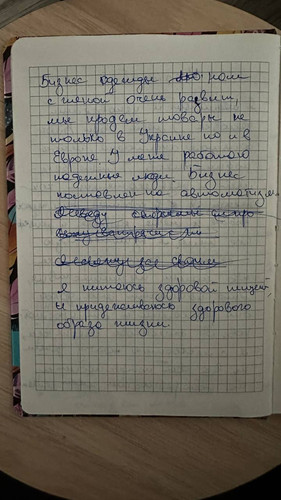 Бизнес одежды наш
с женой очень развит,
мы продаем товары не
только в Украине но и в
Европе У меня работают
надежные люди. Бизнес
поставлен на автоматизм
я питаюсь здоровой пищей,
и придерживаюсь здорового
образа жизни.